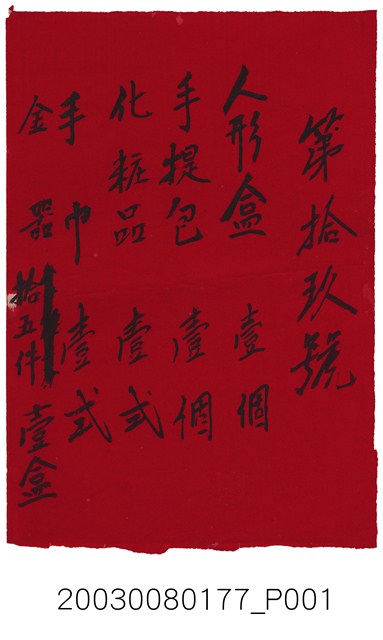 第拾玖號
人形盒 壹個
手提包 壹個
化粧品 壹式
手巾 壹式
金器拾五件 壹盒
20030080177_P001